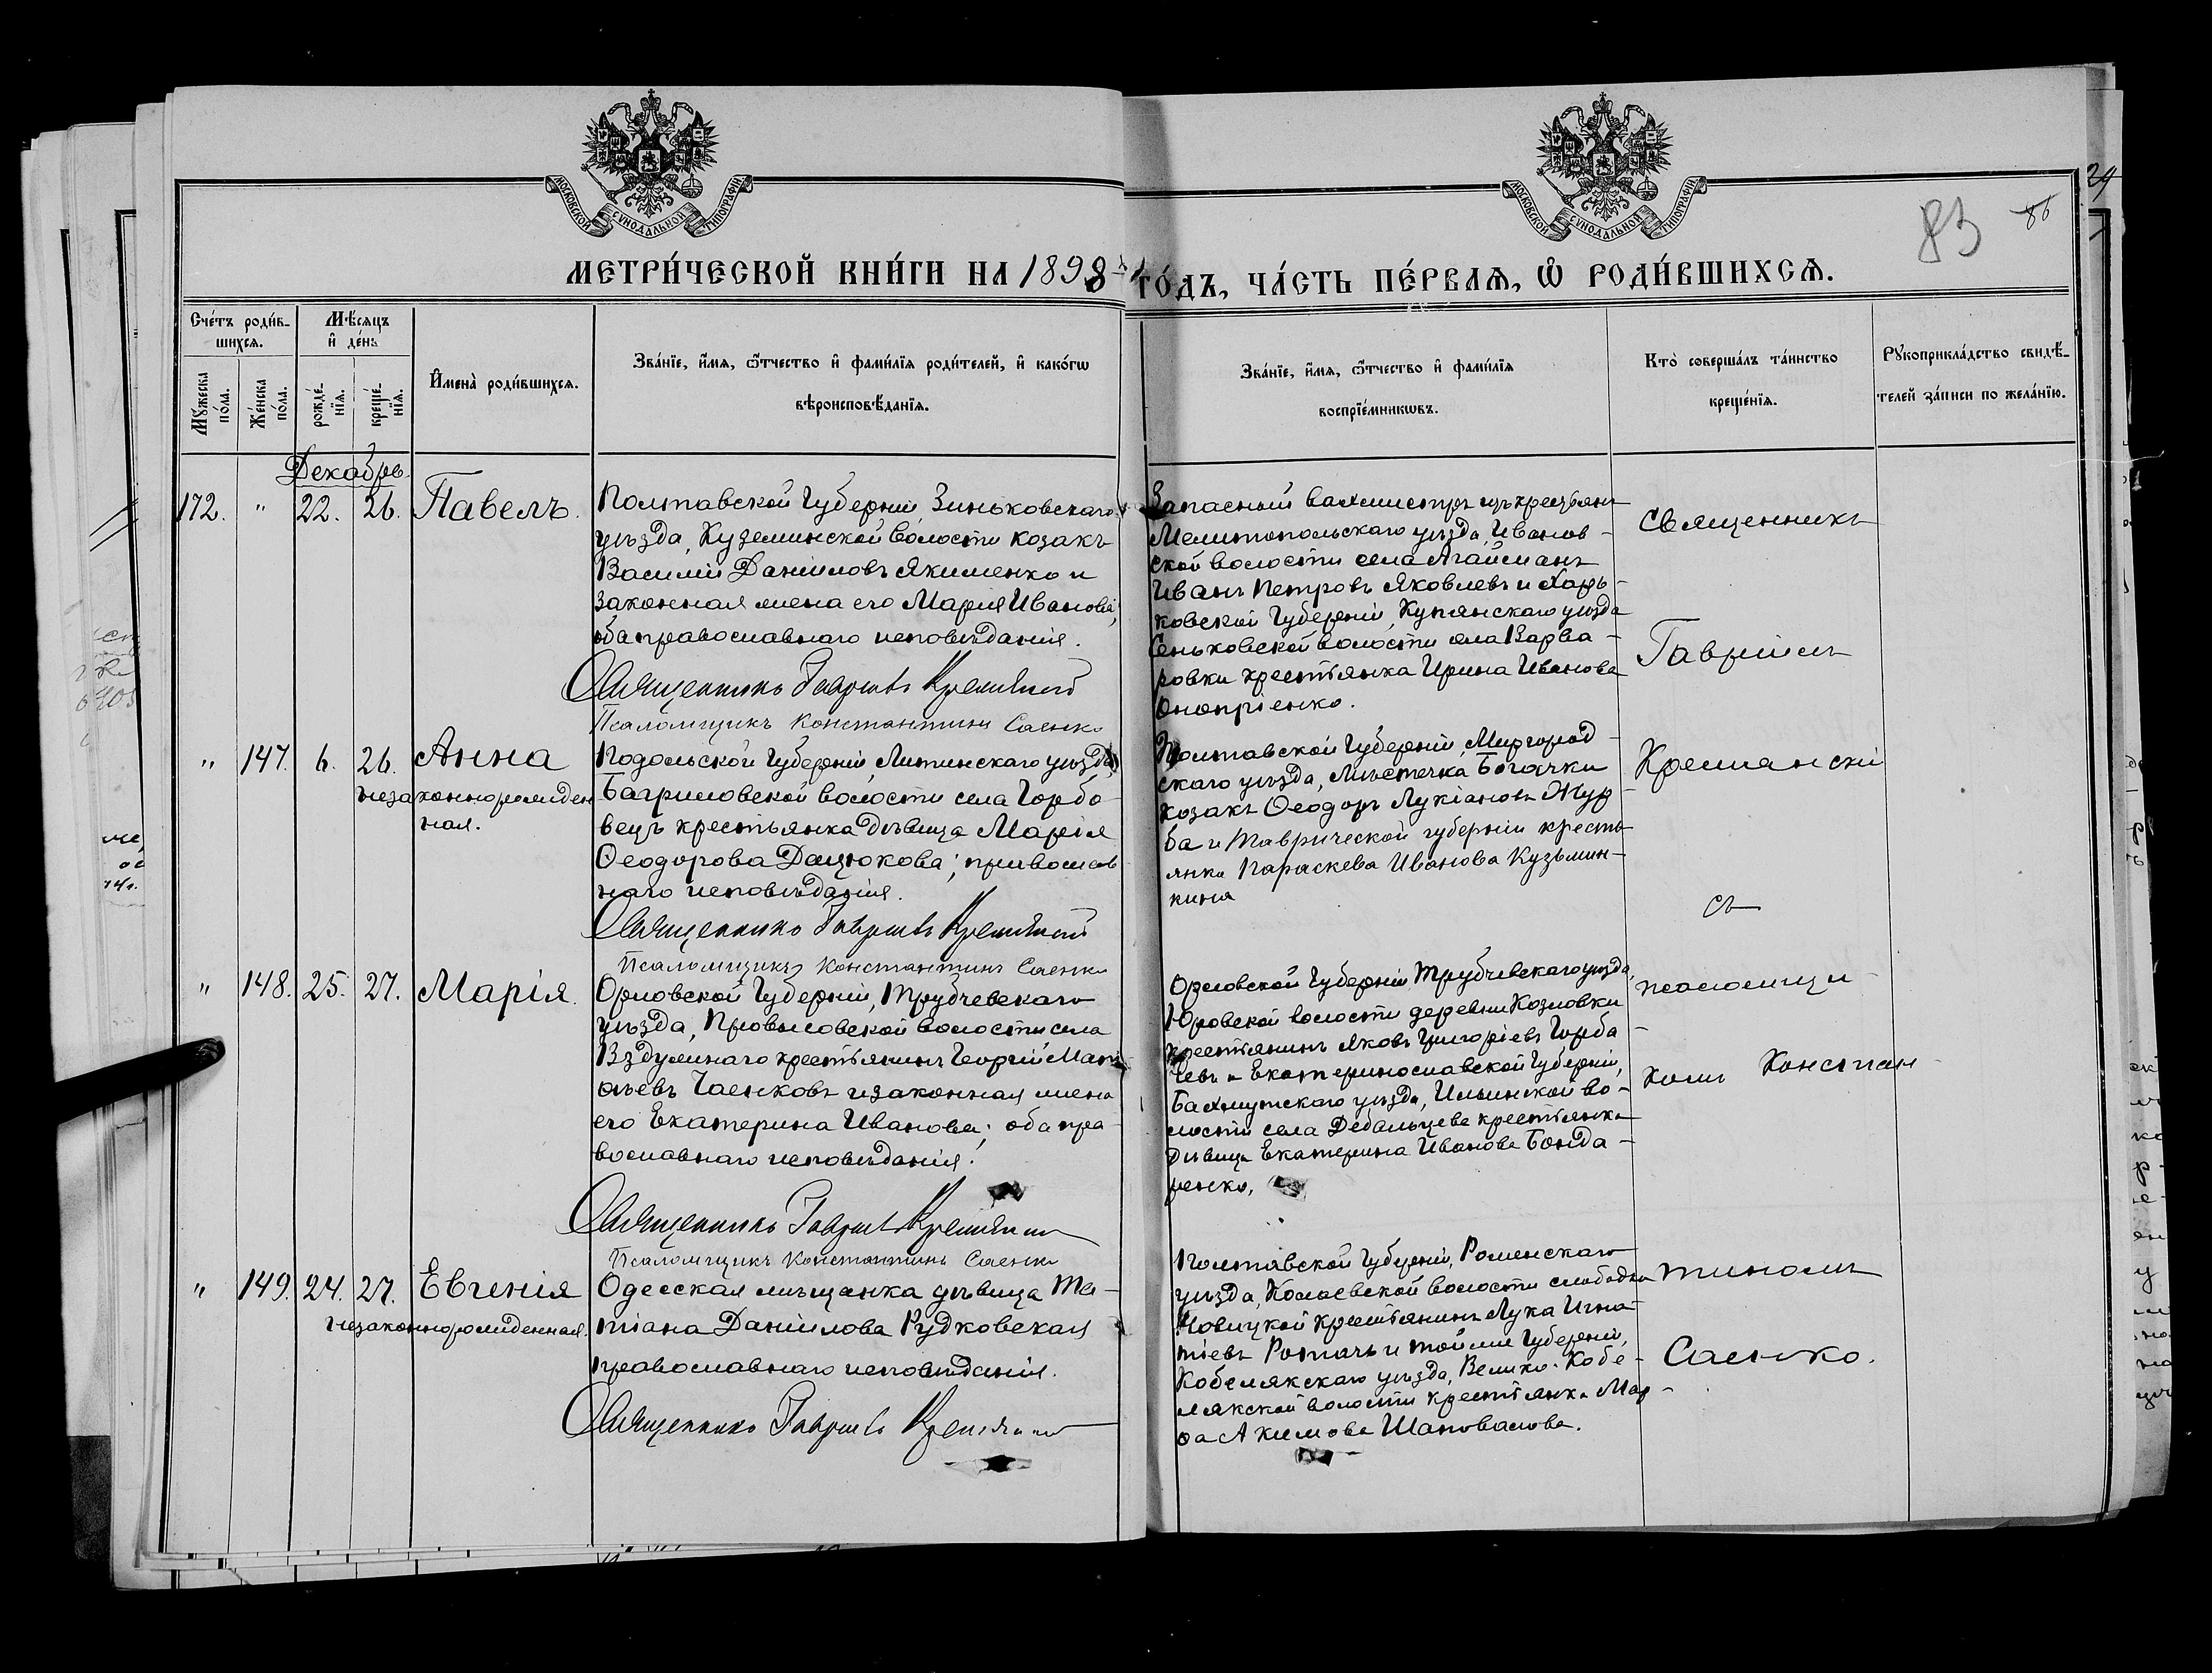 МОСКОВСКОЙ СѴНОДАЛЬНОЙ ТИПОГРАФІИ
МОСКОВСКОЙ СѴНОДАЛЬНОЙ ТИПОГРАФІИ
83
МЕТРИ́ЧЕСКОЙ КНИ́ГИ НА 1898 ГО́ДЪ, ЧА́СТЬ ПЕ́РВАѦ, Ѡ҆ РОДИ́ВШИХСѦ.
Сче́тъ роди́в-
шихсѧ.
Мѣ́сѧцъ
и҆ де́нь
Мꙋ́жеска
по́ла.
Же́нска
по́ла.
рожде́-
нїѧ.
креще́-
нїѧ.
И҆мена̀ роди́вшихсѧ.
Зва́нїе, и҆́мѧ, ѻ҆́тчество и҆ фами́лїѧ роди́телей, и҆ како́гѡ
вѣроисповѣ́данїѧ.
Зва́нїе, и҆́мѧ, ѻ҆́тчество и҆ фами́лїѧ
воспрїе́мникѡвъ.
Кто̀ соверша́лъ та́инство
креще́нїѧ.
Рꙋкоприкла́дство свидѣ́-
телей за́писи по жела́нїю.
Декабрь
172. " 22. 26. Павелъ.
Полтавской Губерніи, Зиньковскаго
уѣзда, Куземинской волости козакъ
Василій Даниіловъ Якименко и
законная жена его Марія Иванова;
оба православнаго исповѣданія.
Священникъ Гавріилъ Кремянскій
Псаломщикъ Константинъ Саенко
Запасный вахмистръ изъ крестьянъ
Мелитопольскаго уѣзда, Иванов-
ской волости села Агайманъ
Иванъ Петровъ Яковлевъ и Харь-
ковской Губерніи, Купянскаго уѣзда
Сеньковской волости села Варва-
ровки крестьянка Ирина Иванова
Оноприенко.
" 147. 6. 26. Анна
незаконнорожден
ная.
Подольской Губерніи, Литинскаго уѣзда,
Багриновской волости села Горбо-
вецъ крестьянка дѣвица Марія
Ѳеодорова Дацюкова; православ
наго исповѣданія.
Священникъ Гавріилъ Кремянскій
Псаломщикъ Константинъ Саенко
Полтавской Губерніи, Миргород-
скаго уѣзда, мѣстечка Богачки
козакъ Ѳеодоръ Лукіановъ Жур-
ба и Таврической губерніи кресть-
янка Параскева Иванова Кузьмин-
кина
" 148. 25. 27. Марія.
Орловской Губерніи, Трубчевскаго
уѣзда, села
крестьянинъ Георгій Мат
ѳѣевъ Чаенковъ и законная жена
его Екатерина Иванова; оба пра-
вославнаго исповѣданія.
Священникъ Гавріилъ Кремянскій
Псаломщикъ Константинъ Саенко
Орловской Губерніи Трубчевскаго уѣзда,
Юровской волости деревни Козловки
крестьянинъ Яковъ Григоріевъ Горба-
чевъ и Екатеринославской Губерніи,
Бахмутскаго уѣзда, Ильинской во-
лости села Дебальцева крестьянка
дѣвица Екатерина Иванова Бонда-
ренко.
" 149. 24. 27. Евгенія
незаконнорожденная.
Одесская мѣщанка дѣвица Та-
тіана Даниілова Рудковская
православнаго исповѣданія.
Священникъ Гавріилъ Кремянскій
Полтавской Губерніи, Роменскаго
уѣзда, волости слободки
крестьянинъ Лука Игна-
тіевъ Ротачь и той же Губерніи,
Кобелякскаго уѣзда, Велико-Кобе-
лякской волости крестьянка Мар-
ѳа Акимова Шаповалова.
Священникъ
Гавріилъ
Кремянскій
съ
псаломщи-
комъ Констан-
тиномъ
Саенко.